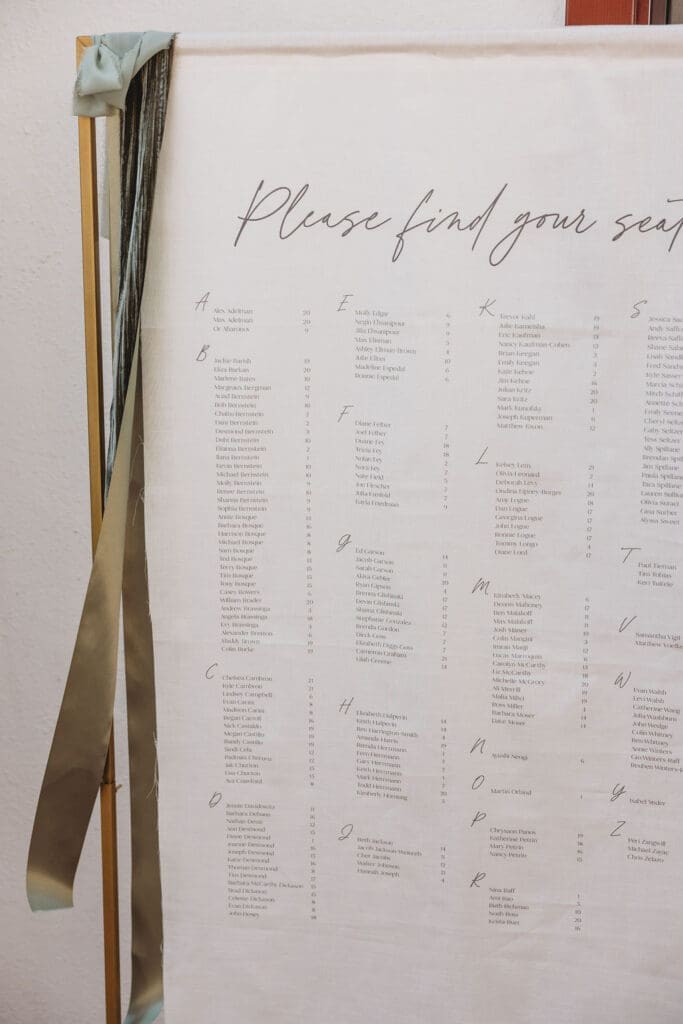 Please find your seat
A
Alex Adelman 20
Max Adelman 20
Or Aharonov 9
B
Jackie Barish 19
Eliza Barkan 20
Marlene Bates 10
Margeaux Bergman 12
Arnd Bernstein 9
Bob Bernstein 10
Chaim Bernstein 2
Dani Bernstein 2
Desmond Bernstein 3
Dobi Bernstein 10
Elianna Bernstein 2
Ilana Bernstein 1
Kevin Bernstein 10
Michael Bernstein 10
Molly Bernstein 9
Renee Bernstein 10
Shanna Bernstein 9
Sophia Bernstein 9
Annie Bosque
Barbara Bosque 16
Harrison Bosque 8
Michael Bosque 8
Sam Bosque 8
Ted Bosque
Terry Bosque 15
Tim Bosque 15
Tony Bosque 15
Casey Bowers 6
William Brader 20
Andrew Brassinga 3
Angela Brassinga 18
Key Brassinga 3
Alexander Brenton 6
Maddy Brown 19
Colin Burke 19
C
Chelsea Cambron 21
Kyle Cambron 21
Lindsey Campbell 6
Evan Carini 8
Madison Carini 8
Regan Carroll 8
Nick Castaldo 16
Megan Castillo 19
Randy Castillo 19
Sindi Cela 12
Padrain Chencea
Jak Churvin 12
Lisa Churvin 13
Ava Crawford 8
D
Jennie Davidowitz 11
Barbara Debano 16
Nathan Denic 12
Ann Desmond 15
Diane Desmond 1
Joanne Desmond 16
Joseph Desmond 15
Katie Desmond 16
Thomas Desmond 8
Tim Desmond 17
Barbara McCarthy Dickason 15
Brad Dickason 8
Celeste Dickason 8
Evan Dickason 8
John Doney 18
E
Molly Edgar 6
Negin Ehsanipour 9
Jilla Ehsanipour 9
Max Elisman 3
Ashley Ellman-Brown 4
Julie Ellner 10
Madeline Espedal 6
Ronnie Espedal 6
F
Diane Felber 7
Joel Felber 7
Duane Fey 18
Tricia Fey 18
Nolan Fey 2
Nora Fey 2
Nate Field 5
Joe Flescher 2
Julia Funfeld 7
Layla Friedman 9
G
Ed Garson 14
Jacob Garson 11
Sarah Garson 11
Akiva Gibler 4
Ryan Gipson 20
Brenna Glishinski 4
Devin Glishinski 17
Shaina Glishinski 12
Stephanie Gonzales 12
Brenda Gordon 12
Dieck Goss 7
Elizabeth Diggs Goss 7
Cameron Graham 21
Lilah Greene 14
H
Elisabeth Halperin 4
Keith Halperin 4
Ben Harrington-Smith 14
Amanda Harris 4
Brenda Herrmann 19
Fern Herrmann 1
Gary Herrmann 1
Keith Herrmann 1
Mark Herrmann 2
Todd Herrmann 1
Kimberly Hornung 20
J
Beth Jackson 14
Jacob Jackson-Munroth 11
Cher Jacobs 11
Walter Johnson 13
Hannah Joseph 4
K
Trevor Kahl 19
Julie Kamelsha 19
Eric Kaufman 19
Nancy Kaufman-Cohen 13
Brian Keegan 3
Emily Keegan 3
Katie Kehoe 2
Jim Kehoe 16
Julian Kritz 20
Sara Kritz 20
Mark Kunofsky 1
Joseph Kuperman 6
Matthew Kwon 12
L
Kelsey Fern 21
Olivia Leonard 2
Deborah Levy 14
Undina Lipney-Burger 20
Amy Logue 18
Dan Logue 17
Georgina Logue 17
John Logue 17
Ronnie Logue 17
Tommy Longo 4
Diane Lord 17
M
Kimberly Macey 6
Dennis Mahoney 17
Dan Malakoff 11
Max Malakoff 11
Josh Maner 10
Colin Mangini 3
Imran Manji 12
Lucas Marroquin 6
Carolyn McCarthy 13
Liz McCarthy 18
Michelle McGrory 20
Ali Merrill 19
Malia Mihci 19
Ross Miller 4
Barbara Moser 14
Dave Moser 14
N
Ayushi Neogi 6
O
Martin Orland 1
P
Chrysaon Panos 19
Katherine Petrin 18
Mary Petrin 16
Nancy Petrin 15
R
Nina Raff 1
Arvi Rao 5
Ruth Richman 10
Noah Ross 20
Krisha Ruet 16
S
Jessica
Andy
Reeva
Shane
Leah
Fred
Kyle Sasser
Marcia
Mitch
Annette
Emily
Cheryl
Gaby
Tess
Ally Spillane
Brendan
Jim Spillane
Paula
Erica Spillane
Lauren
Olivia
Gina Surber
Alyssa Sweet
T
Paul Tiernan
Tim Tobler
Keri
V
Samantha Vigil
Matthew
W
Evan Walsh
Levi Walsh
Catherine Wang
Julia Washburn
John Wedge
Colin Whitney
Ben Whitney
Annie Winters
Gio Winters-Raff
Reuben Winters
Y
Ysabel Ynder
Z
Peri Zangvill
Michael Zajac
Chris Zelazo